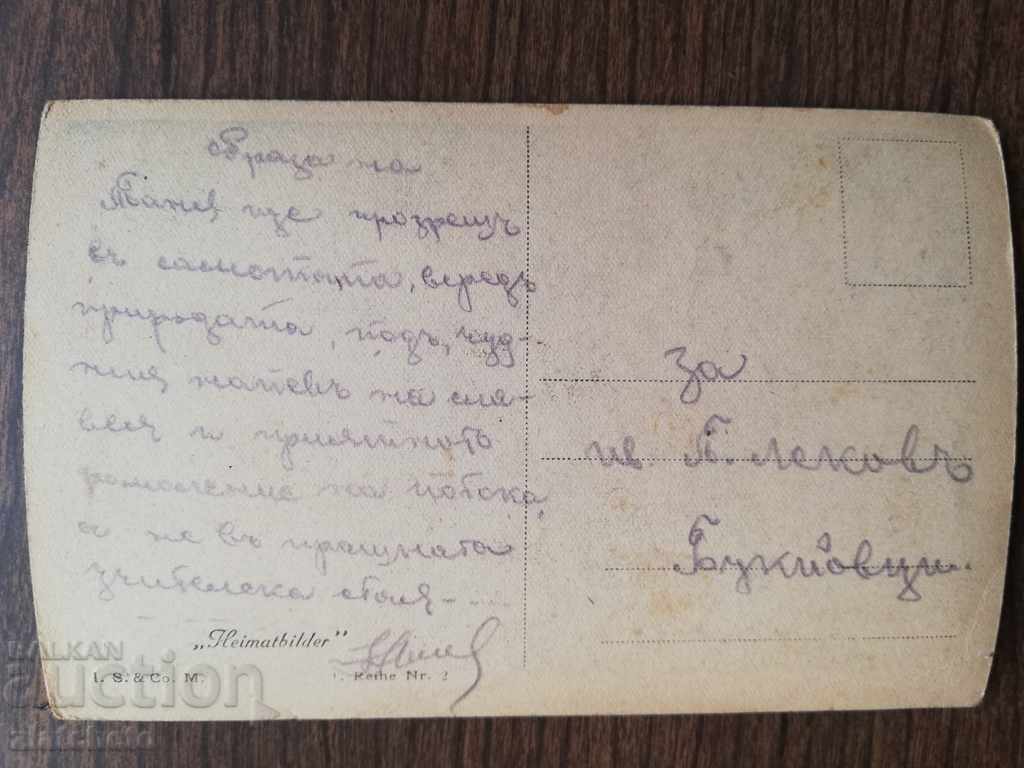 Образа на
Таня, ще прозрешъ
въ самотата, вредъ
природата, подъ, чуд-
ния напевъ на сла-
вея и приятното
ромоление на потока,
а не въ прашната
учителска стая-....
„Heimatbilder"
I. S. & Co. M.
Reihe Nr.
За
ив. П. Лековъ
Букьовци.
BALKAN
auction
zlatcheto